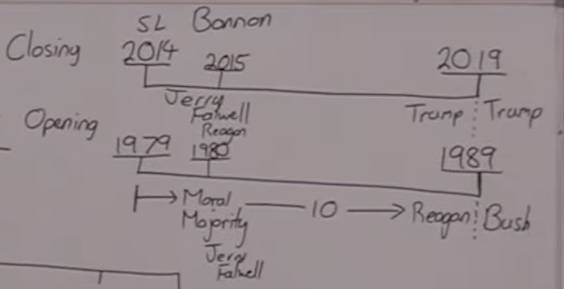 SL Bannon
Closing 2014 2015 2019
Jerry Falwell Trump Trump
Opening Reagan
1979 1980 1989
Moral Majority 10 Reagan Bush
Jerry Falwell